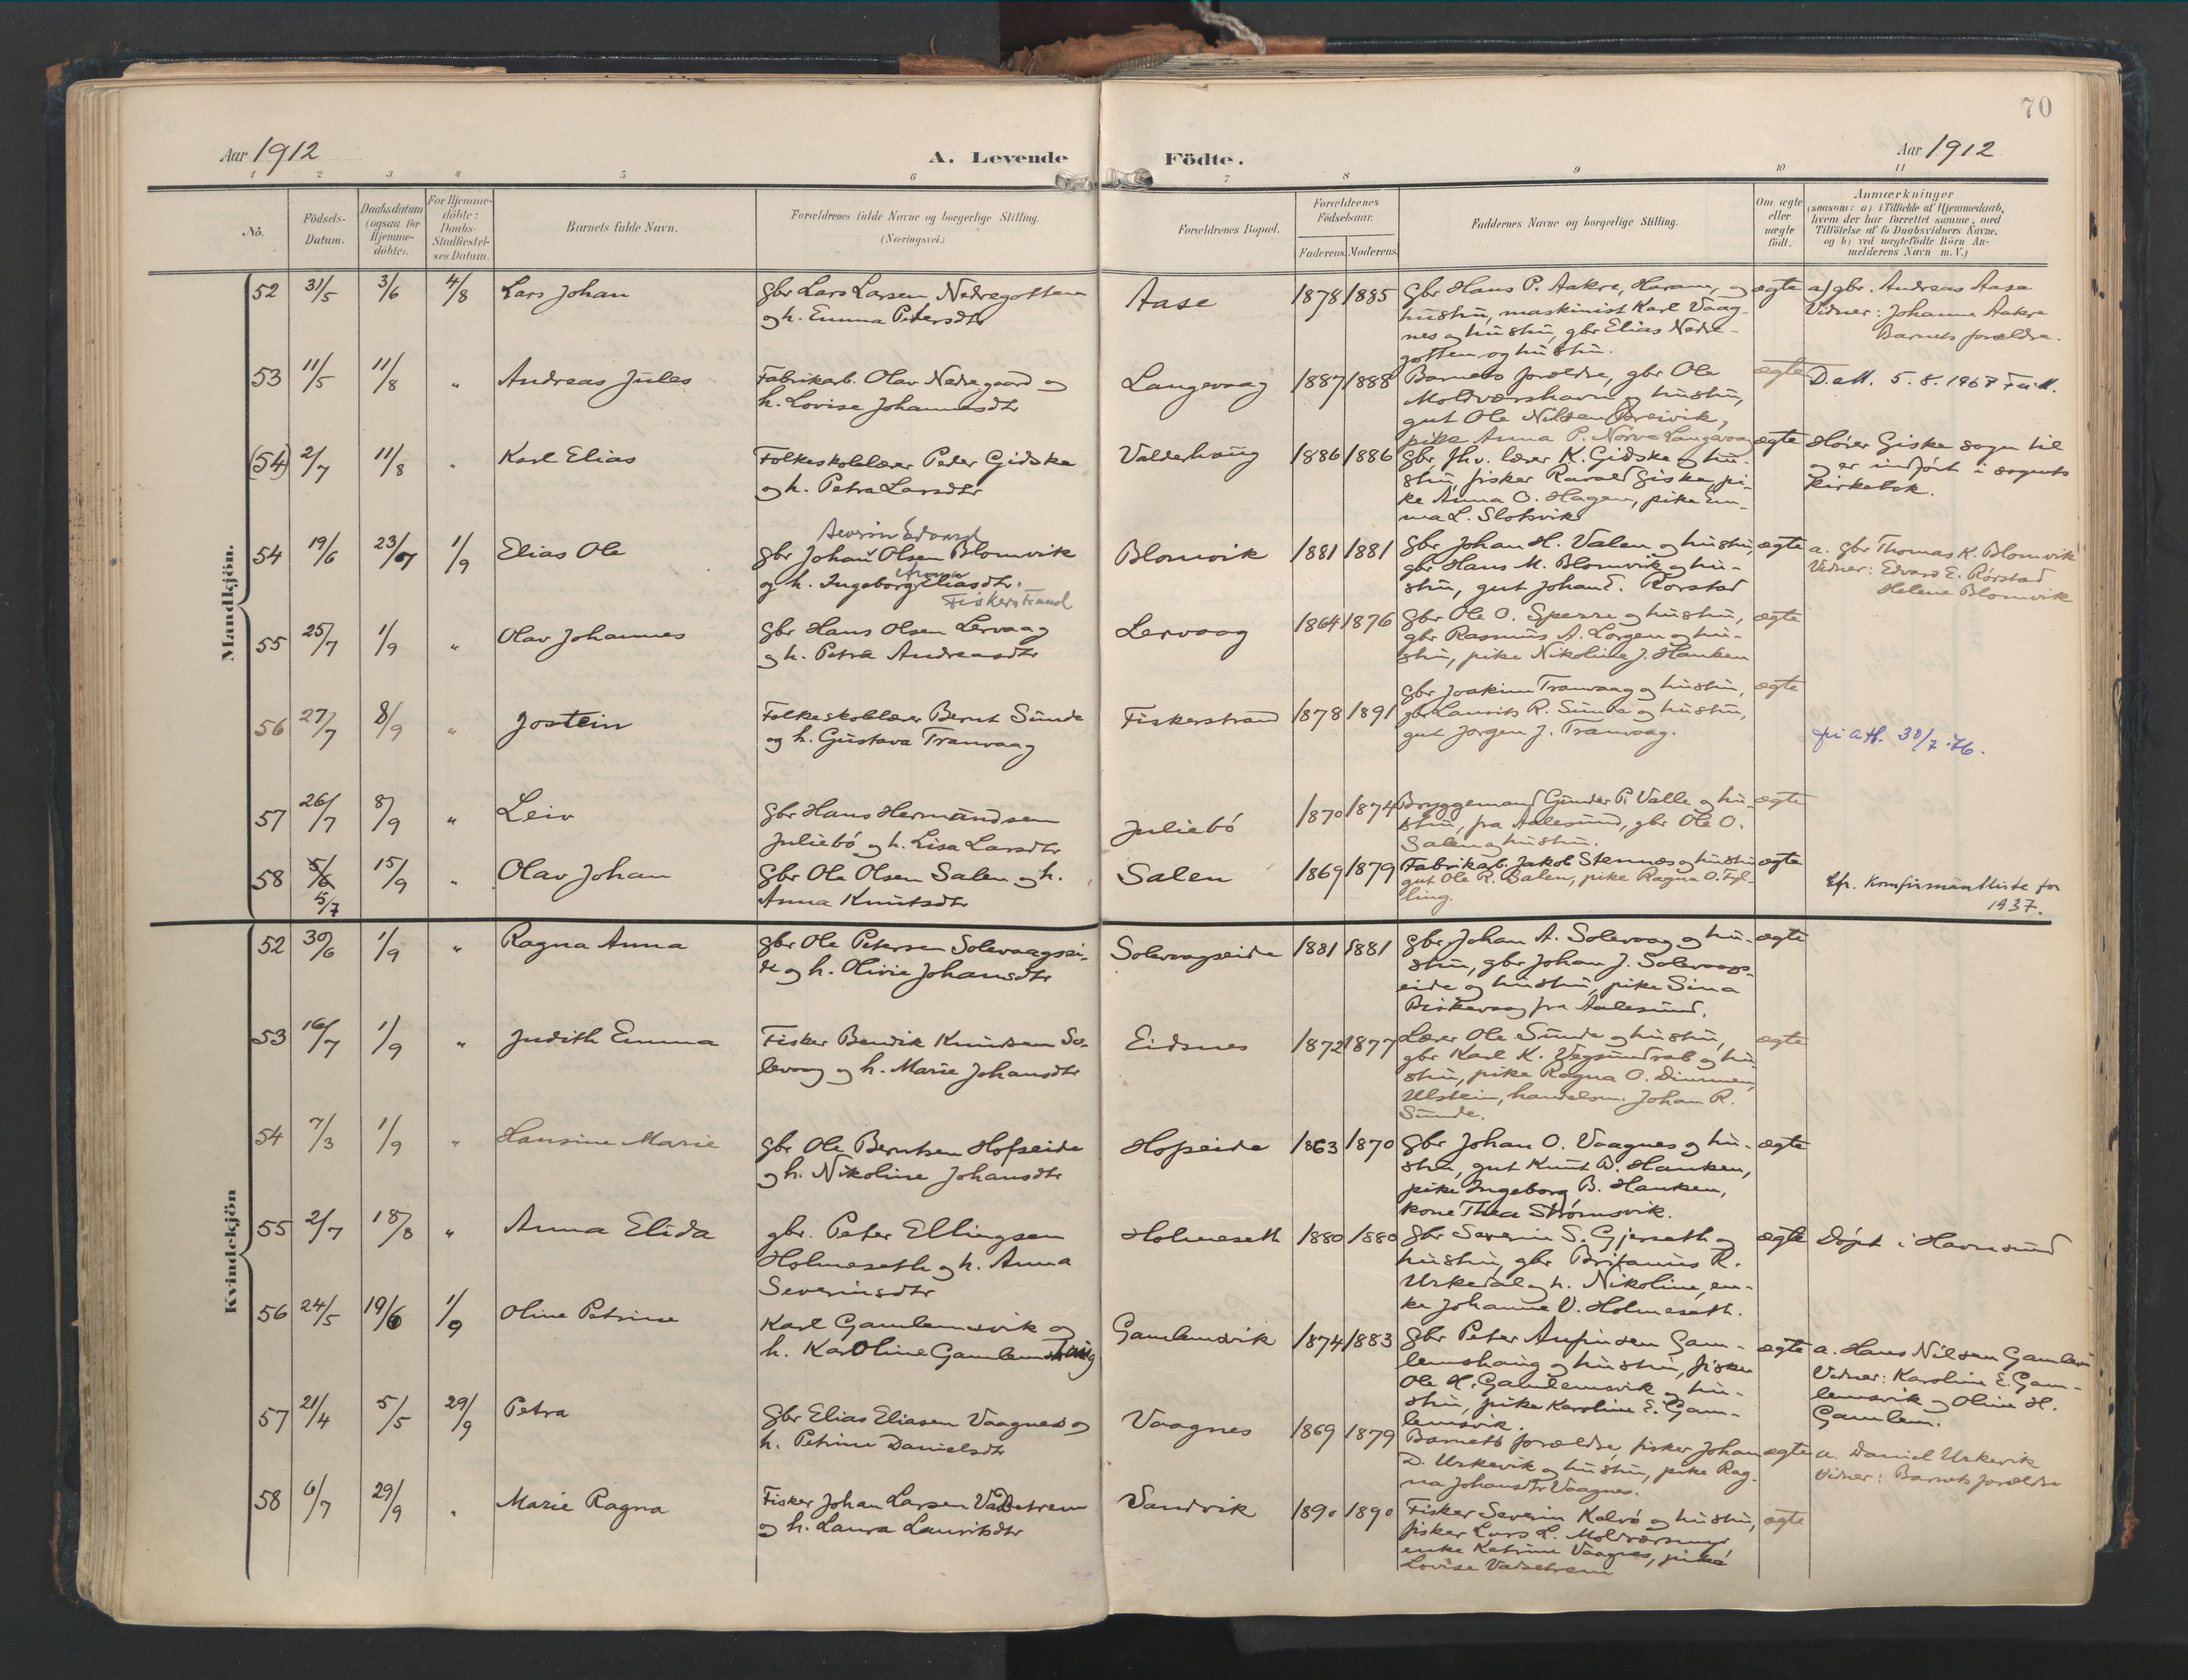 70
Aar 1912
A. Levende Födte.
Aar 1912
1 2 3 4 5 6 7 8 9 10 11
No.
Födsels-
Datum.
Daabsdatum
(ogsaa for
Hjemme-
döbte).
For Hjemme-
döbte:
Daabs-
Stadfæstel-
ses Datum.
Barnets fulde Navn.
Forældrenes fulde Navne og borgerlige Stilling.
(Næringsvei.)
Forældrenes Bopæl.
Forældrenes
Födselsaar.
Faderens. Moderens.
Faddernes Navne og borgerlige Stilling.
Om ægte
eller
uægte
födt.
Anmærkninger
(saasom: a) i Tilfælde af Hjemmedaab,
hvem der har forrettet samme, med
Tilföielse af to Daabsvidners Navne,
og b) ved uægtefödte Börn An-
melderens Navn m. V.)
Mandkjön.
52 31/5 3/6 4/8 Lars Johan
Gbr Lars Larsen Nedregotten
og h. Emma Petersdtr
Aase 1878 1885
Gbr Hans P. Aakre, Haram, og
hustru, maskinist Karl Vaag-
nes og hustru, gbr Elias Nedre-
gotten og hustru.
ægte
a) gbr. Andreas Aase
Vidner: Johanna Aakre
Barnets forældre.
53 11/5 11/8 " Andreas Jules
Fabrikarb. Olav Nedregaard og
h. Lovise Johannesdtr
Langevaag 1887 1888
Barnets forældre, gbr Ole
Moldværshavn og hustru,
gut Ole Nilsen Breivik,
pike Anna P. Norve Langevaag
ægte
D.att. 5.8.1967
(54) 2/7 11/8 " Karl Elias
Folkeskolelærer Peder Gidske
og h. Petra Larsdtr
Valderhaug 1886 1886
Gbr fhv. lærer K. Gidske og hu-
stru, fisker Ravald Giske, pi-
ke Anna O. Hagen, pike Em-
ma L. Slotsvik
ægte
Hører Giske sogn til
og er indført i sognets
kirkebok.
54 19/6 23/6 1/9 Elias Ole
Severin Edvard
Gbr Johan Olsen Blomvik
og h. Ingeborg Eliasdtr.
Fiskerstrand
Blomvik 1881 1881
Gbr Johan H. Valen og hustru,
gbr Hans M. Blomvik og hu-
stru, gut Johan E. Rørstad
ægte
a. gbr Thomas K. Blomvik
Vidner: Edvard E. Rørstad
Helene Blomvik
55 25/7 1/9 " Olav Johannes
Gbr Hans Olsen Lervaag
og h. Petra Andreasdtr
Lervaag 1864 1876
Gbr Ole O. Sperre og hustru,
gbr Rasmus A. Lorgen og hu-
stru, pike Nikoline J. Hanken
ægte
56 27/7 8/9 " Jostein
Folkeskolelærer Bernt Sunde
og h. Gustava Tranvaag
Fiskerstrand 1878 1891
Gbr Joakim Tranvaag og hustru,
gbr Laurits R. Sunde og hustru,
gut Jørgen J. Tranvaag.
ægte
fri att. 30/7.76.
57 26/7 8/9 " Leiv
Gbr Hans Hermandsen
Juliebø og h. Lisa Larsdtr
Juliebø 1870 1874
Bryggemand Gunder P. Valle og hu-
stru, fra Aalesund, gbr Ole O.
Salen og hustru.
ægte
58 5/6 5/7 15/9 " Olav Johan
Gbr Ole Olsen Salen og h.
Anna Knutsdtr
Salen 1869 1879
Fabrikarb. Jakob Stennæs og hustru
gut Ole R. Salen, pike Ragna O. Fyl-
ling.
ægte
Cfr. Konfirmantliste for
1937.
Kvindekjön
52 30/6 1/9 " Ragna Anna
Gbr Ole Petersen Solevaagsei-
de og h. Olivie Johansdtr
Solevaagseide 1881 1881
Gbr Johan A. Solevaag og hu-
stru, gbr Johan J. Solevaags-
eide og hustru, pike Sina
Birkevaag fra Aalesund.
ægte
53 16/7 1/9 " Judith Emma
Fisker Bendik Knudsen So-
levaag og h. Marie Johansdtr
Eidsnes 1872 1877
Lærer Ole Sunde og hustru,
gbr Karl K. Vegsundrab og hu-
stru, pike Ragna O. Dimmen,
Ulstein, handelsm. Johan R.
Sunde.
ægte
54 7/3 1/9 " Hansine Marie
Gbr Ole Berntsen Hofseide
og h. Nikoline Johansdtr
Hofseide 1863 1870
Gbr Johan O. Vaagnes og hu-
stru, gut Knut B. Hanken,
pike Ingeborg B. Hanken,
kone Thea Strømsvik.
ægte
55 2/7 18/8 " Anna Elida
gbr. Peter Ellingsen
Holmeseth og h. Anna
Severinsdtr
Holmeseth 1880 1880
Gbr Severin S. Gjerseth og
hustru, gbr Britanus R.
Urkedal og h. Nikoline, en-
ke Johanne V. Holmeseth.
ægte
Døpt i Havnsund
56 24/5 19/6 1/9 Oline Petrine
Karl Gamlemsvik og
h. Karoline Gamlemshaug
Gamlemsvik 1874 1883
Gbr Peter Anfindsen Gam-
lemshaug og hustru, fisker
Ole H. Gamlemsvik og hu-
stru, pike Karoline E. Gam-
lemsvik.
ægte
a. Hans Nilsen Gamlem
Vidner: Karoline E. Gam-
lemsvik og Oline H.
Gamlem.
57 21/4 5/5 29/9 Petra
Gbr Elias Eliasen Vaagnes og
h. Petrine Danielsdtr
Vaagnes 1869 1879
Barnets forældre, fisker Johan
D. Urkevik og hustru, pike Rag-
na Johansdtr Vaagnes.
ægte
a. Daniel Urkevik
Vidner: Barnets forældre
58 6/7 29/9 " Marie Ragna
Fisker Johan Larsen Vadsetrem
og h. Laura Lauritsdtr
Sandvik 1890 1890
Fisker Severin Kalvø og hustru,
fisker Lars L. Moldværsmyr,
enke Katrine Vaagnes, pike
Lovise Vadsetrem
ægte